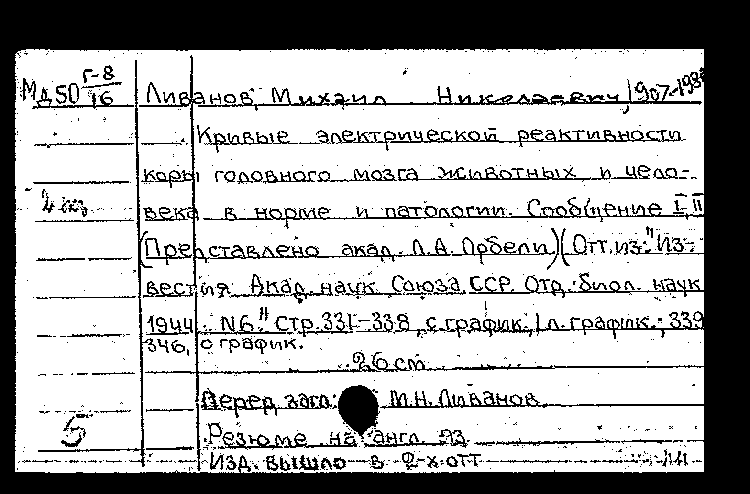 Мд50 Г-8/16 Ливанов, Михаил Николаевич, 1907-198
Кривые электрической реактивности
коры головного мозга животных и чело-
4 экз века в норме и патологии. Сообщение I, II
(Представлено акад. Л.А. Орбели) (Отт. из: "Из-
вестия Акад. наук Союза ССР. Отд. биол. наук
1944. N6." Стр. 331-338, с график., 1 л. график.; 339
346, с график.
26 cm
Перед загл: М.Н. Ливанов
5
Резюме на англ. яз
Изд. вышло в 2-х отт